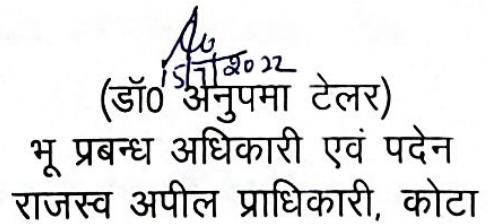 15/7/2022
(डॉ0 अनुपमा टेलर)
भू प्रबन्ध अधिकारी एवं पदेन
राजस्व अपील प्राधिकारी, कोटा